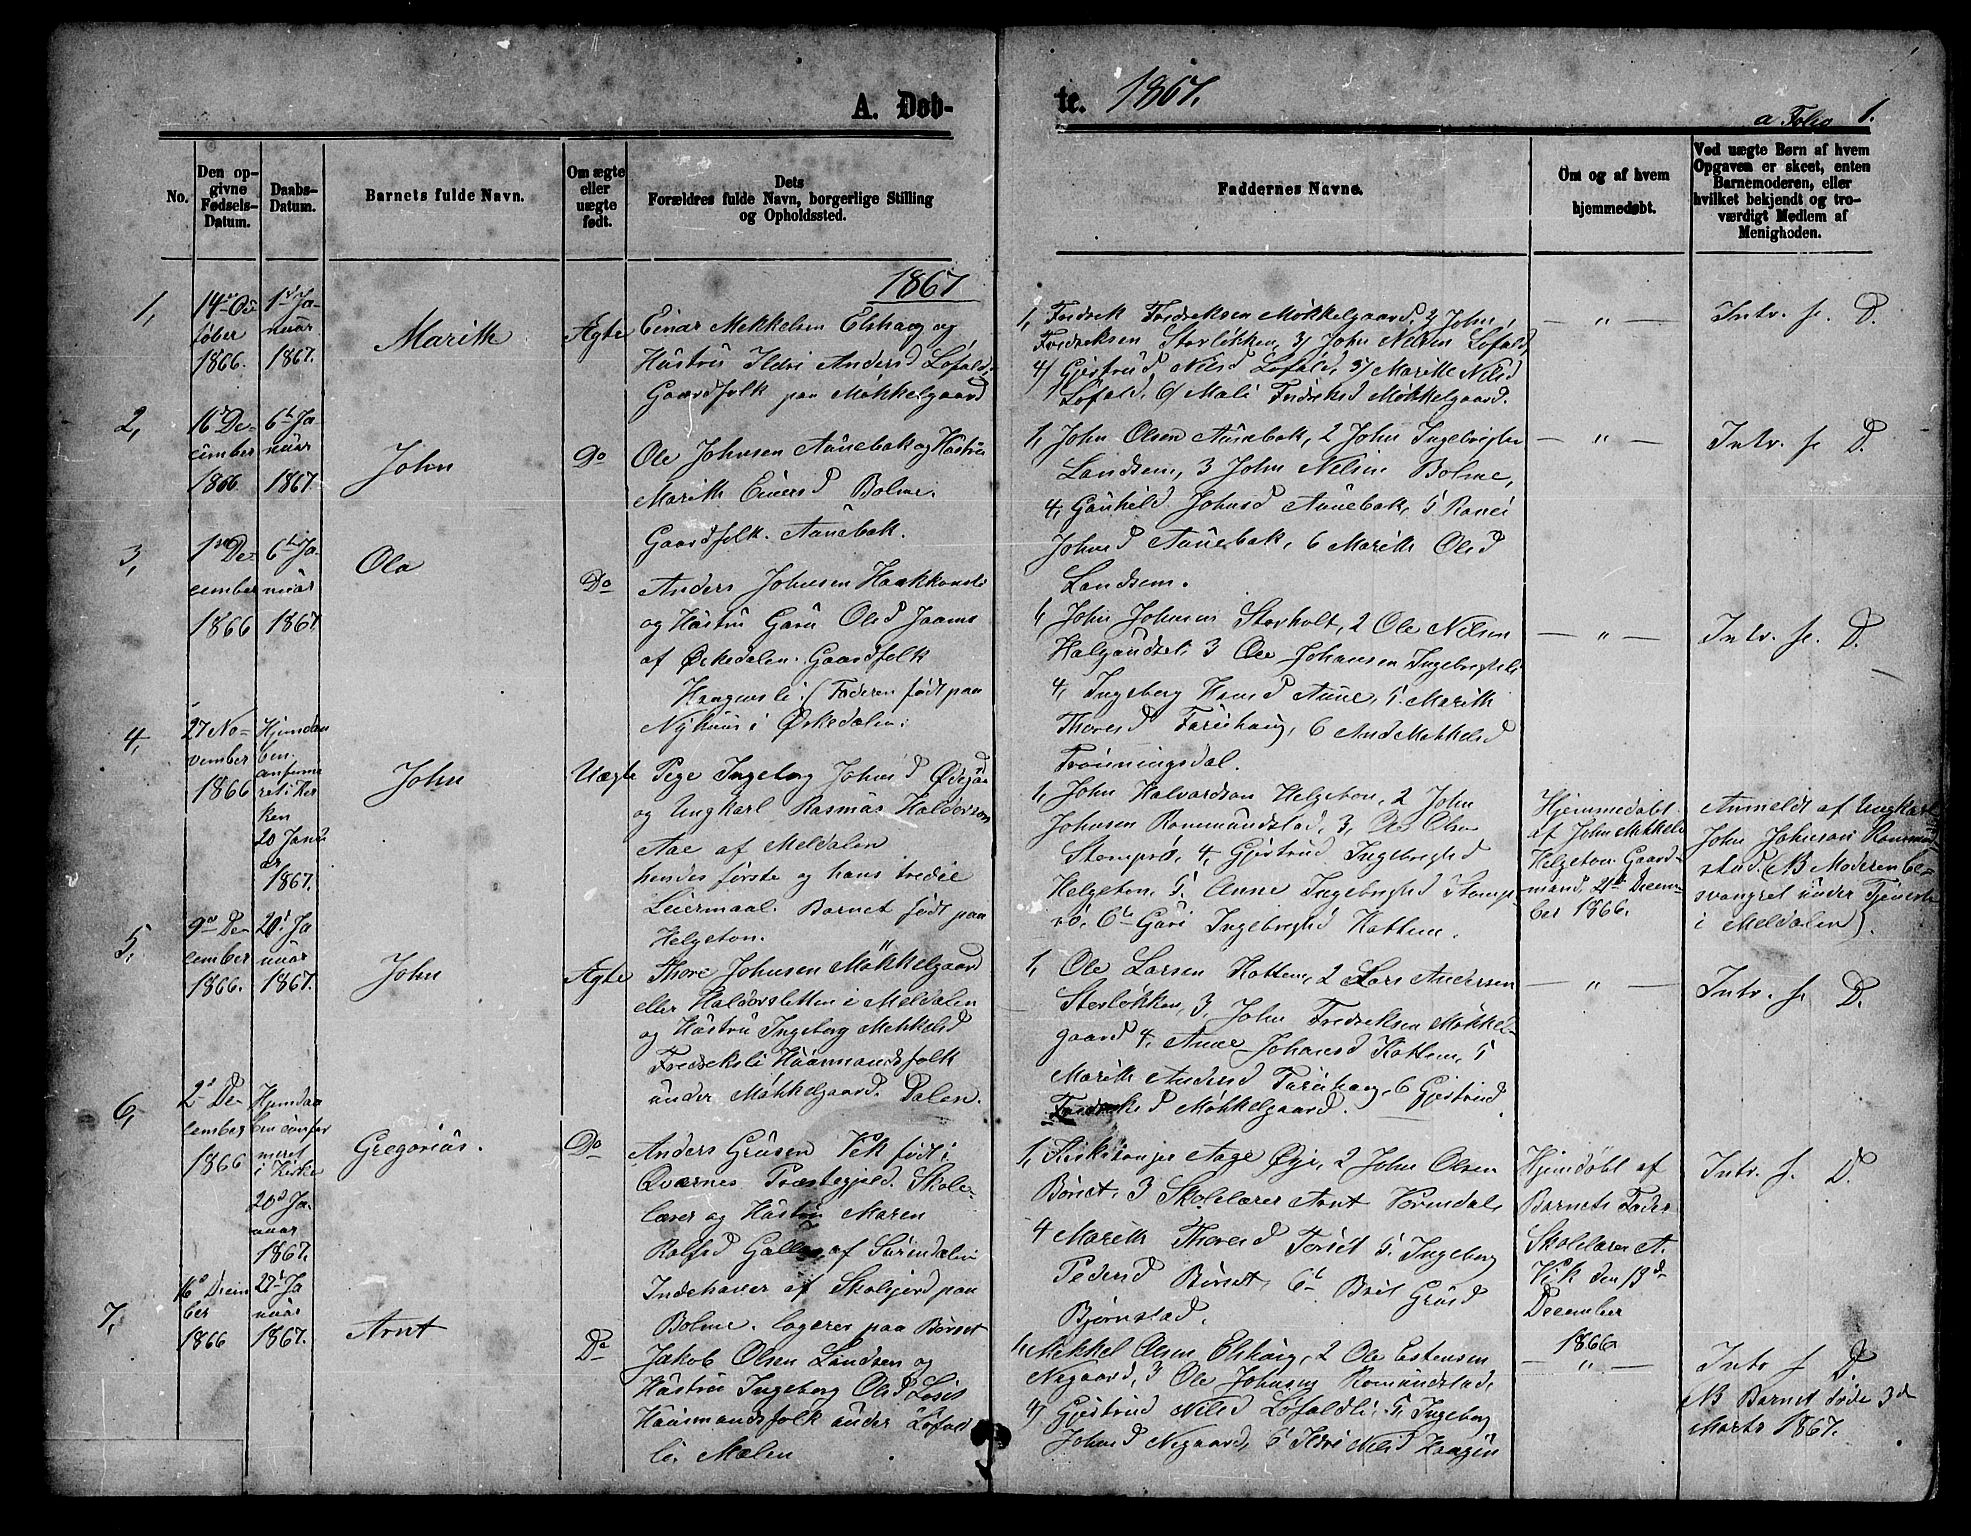 A. Døb-
te. 1867.
a Folio 1.
No.
Den op-
givne
Fødsels-
Datum.
Daabs-
Datum.
Barnets fulde Navn.
Om ægte
eller
uægte
født.
Dets
Forældres fulde Navn, borgerlige Stilling
og Opholdssted.
Faddernes Navne.
Om og af hvem
hjemmedøbt.
Ved uægte Børn af hvem
Opgaven er skeet, enten
Barnemoderen, eller
hvilket bekjendt og tro-
værdigt Medlem af
Menigheden.
1867
1,
14de Oc
tober
1866.
1st Ja-
nuar
1867.
Marith
Ægte
Einar Mekkelsen Elshaug og
Hustru Ildri Andersd Løfald,
Gaardfolk paa Møkkelgaard
1, Fredrik Fredriksen Møkkelgaard, 2 John
Fredriksen Storløkken, 3, John Nilsen Løfald,
4, Gjertrud Nilsd Løfald, 5, Marith Nilsd
Løfald, 6, Mali Fredriksd Møkkelgaard.
— " —
Intr. f. D.
2,
16de De-
cember
1866
6te Ja-
nuar
1867.
John
Do
Ole Johnsen Aunebak og Hustru
Marith Einersd Bolme.
Gaardfolk. Aunebak.
1, John Olsen Aunebak, 2 John Ingebrigtsen
Landsem, 3 John Nilsen Bolme,
4, Gunhild Johnsd Aunebak, 5 Ranei
Johnsd Aunebak, 6 Marith Olsd
Landsem.
— " —
Intr. f. D.
3,
1ste De-
cember
1866
6te Ja-
nuar
1867
Ola
Do
Anders Johnsen Haakkonsli
og Hustru Guru Olsd Jaams
af Ørkedalen. Gaardfolk
Haagensli. (Faderen født paa
Nyhuus i Ørkedalen.
1, John Johnsen Storholt, 2 Ole Nilsen
Halgundset, 3 Ole Johansen Ingebrigtsli
4, Ingeborg Hansd Aune, 5. Marith
Thoresd Faruhaug, 6 And Mekkelsd
Trønningsdal.
— " —
Intr. f. D.
4,
27 No-
vember
1866
Hjemdøb
ben
confirme
ret i Kir
ken
20 Janu
ar
1867.
John
Uægte
Pige Ingeborg Johnsd
og Ungkarl Rasmus Haldorsen
Aae af Meldalen
hendes første og hans tredie
Leiermaal. Barnet født paa
Helgeton.
1, John Halvardson Helgeton, 2 John
Johnsen Rommundstad, 3, Ole Olsen
Stomprø, 4, Gjertrud Ingebrigtsd
Helgeton, 5. Anne Ingebrigtsd Stomp-
rø, 6te Guri Ingebrigtsd Kattem.
Hjemmedøbt
af John Mekkels
Helgeton Gaard-
mand, 21de Decem-
ber 1866.
Anmeldt af Ungkarl
John Johnsen Romund
stad. (NB Moderen be-
svangret under Tjeneste
i Meldalen).
5,
9de De-
cember
1866.
20de Ja
nuar
1867.
John
Ægte
Thore Johnsen Møkkelgaard
eller Haldorsletten i Meldalen
og Hustru Ingeborg Mekkelsd
Fredriksli Huusmandsfolk
under Møkkelgaard. Dalen.
1, Ole Larsen Kattem, 2 Lars Andersen
Storløkken, 3, John Fredriksen Møkkel-
gaard 4, Anne Johansd Kattem, 5
Marith Andersd Faruhaug, 6 Gjertrud
Fredriksd Møkkelgaard.
— " —
Intr. f. D.
6,
2den De-
cember
1866
Hjemdøb
ben confir
meret
i Kirke
20de Ja-
nuar
1867.
Gregorius.
Do
Anders Grusen Vik født i
Qværnes Præstegjeld. Skole-
lærer og Hustru Maren
Rolfsd Galles af Surendalen
Indehaver af Skolejord paa
Bolme. logerer paa Børset
1, Aage Øye, 2 John Olsen
Børset, 3 Skolelærer Arnt Kvendal,
4 Marith Thoresd Torset 5. Ingeborg
Pedersd Børset, 6te Brit Grusd
Bjørnstad.
Hjemdøbt af
Barnets Fader
Skolelærer A.
Vik den 19de
December
1866
Intr. f. D.
7,
16de Decem
ber
1866
27de Ja
nuar
1867.
Arnt
Do
Jakob Olsen Landsem og
Hustru Ingeborg Olsd Løset
Huusmandsfolk under Løfald
li. Mælen
1, Mekkel Olsen Elshaug, 2 Ole Estensen
Negaard, 3 Ole Johnsen Romundstad,
4, Gjertrud Nilsd Løfaldli, 5, Ingeborg
Johnsd Negaard, 6 Ildri Nilsd
— " —
Intr. f. D.
NB Barnet døde 3de
Marts 1867.